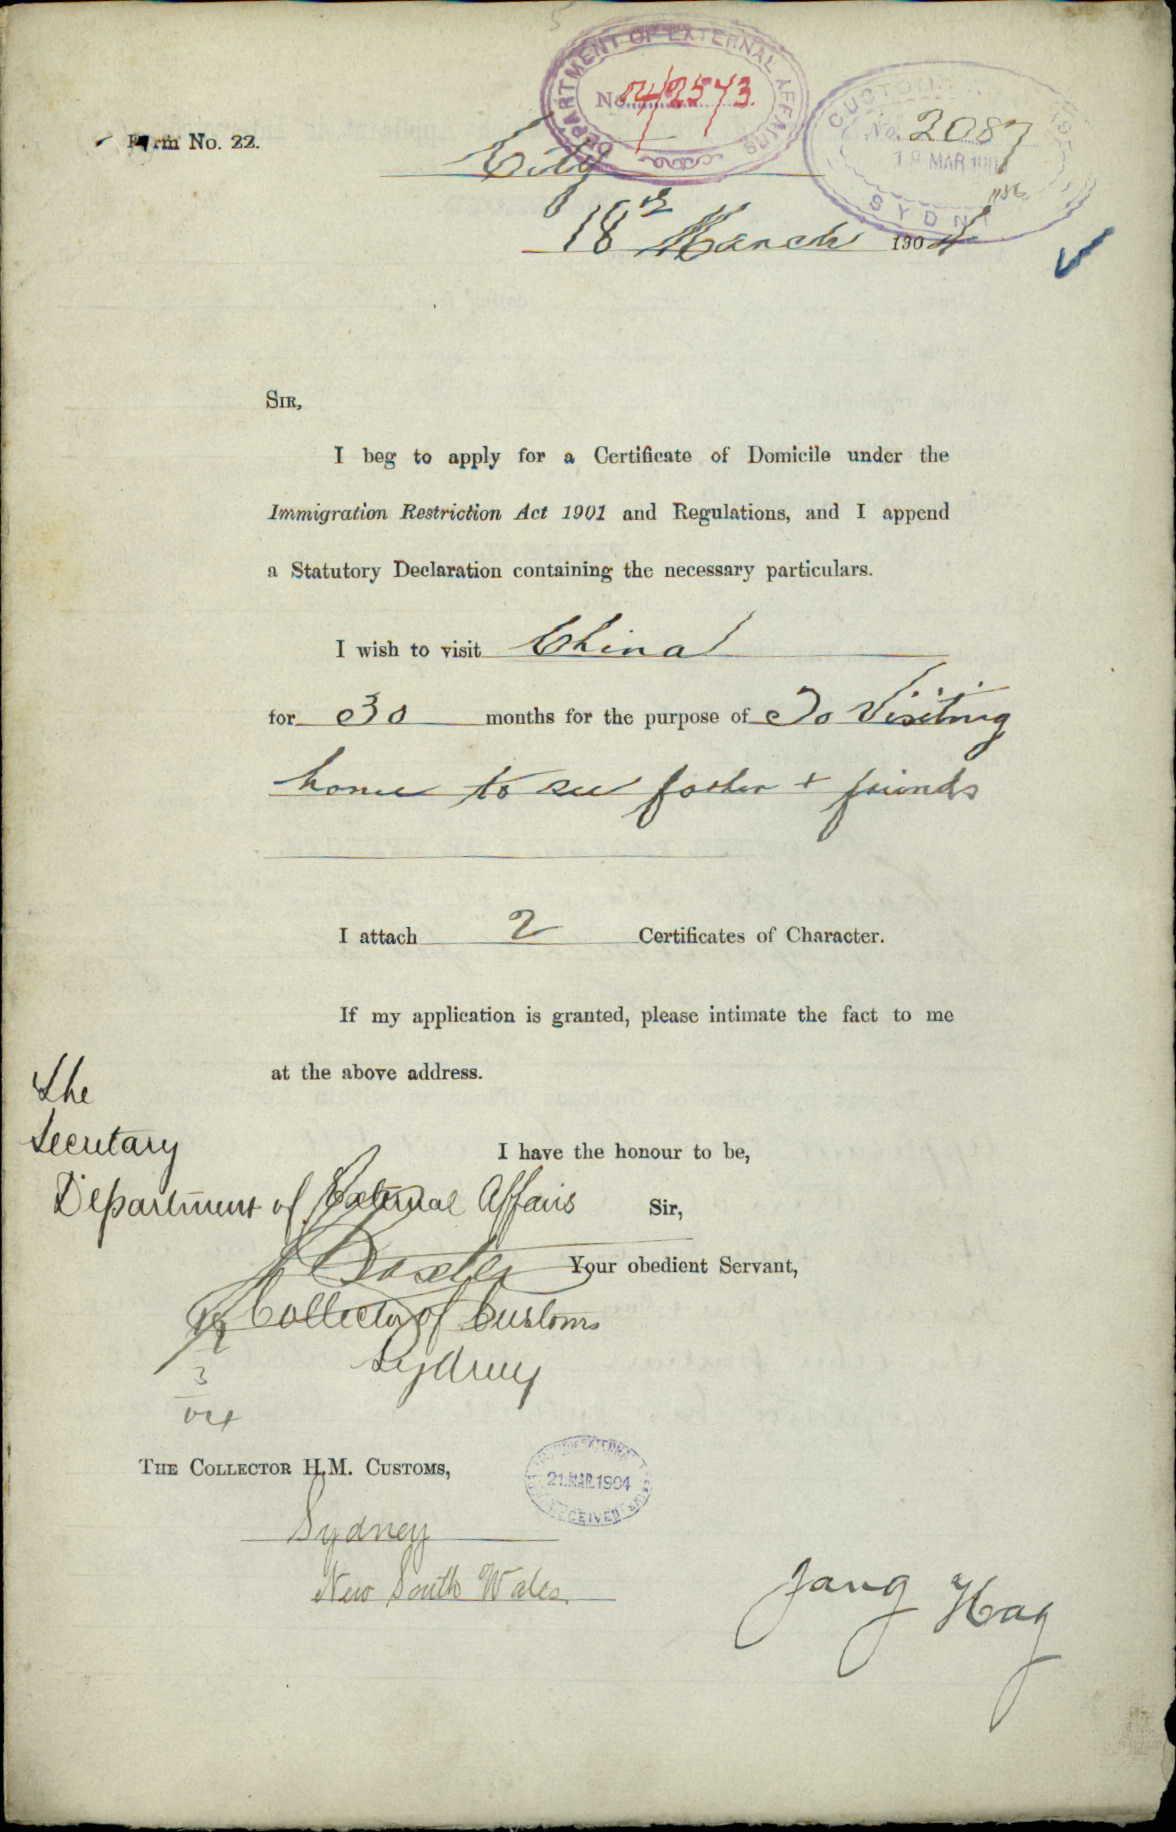 DEPARTMENT OF EXTERNAL AFFAIRS
No. 04/2573.
CUSTOM
No. 2087
18 MAR 190
SYDN
Form No. 22.
City
18th March 1904
SIR,
I beg to apply for a Certificate of Domicile under the
Immigration Restriction Act 1901 and Regulations, and I append
a Statutory Declaration containing the necessary particulars.
I wish to visit China
for 30 months for the purpose of To Visiting
home to see father + friends
I attach 2 Certificates of Character.
If my application is granted, please intimate the fact to me
at the above address.
The
Secretary
I have the honour to be,
Department of External Affairs
Sir,
Baxter
Your obedient Servant,
Collector of Customs
Sydney
3
04
THE COLLECTOR H.M. CUSTOMS,
21.MAR.1904
RECEIVED
Sydney
New South Wales.
Jang Hag